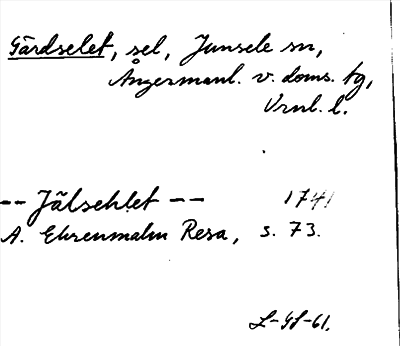 Gårdselet, sel, Junsele sn,
Ångermanl. v. doms. tg,
Vrnl. l.
-- Jälsehlet -- 1741
A. Ehrenmalm Resa, s. 73.
L-GS-61.